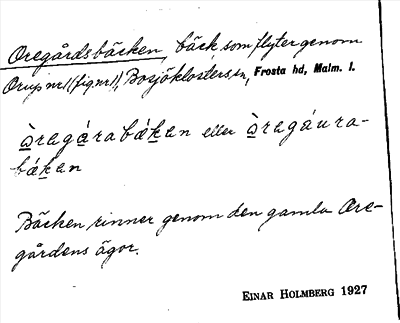 Oregårdsbäcken, bäck som flyter genom
Orup nr 1 (fig. nr 1), Bosjöklosters sn, Frosta hd, Malm. l.
òragàrabǽkan eller òragáura-
bǽkan
Bäcken rinner genom den gamla Ore-
gårdens ägor.
EINAR HOLMBERG 1927